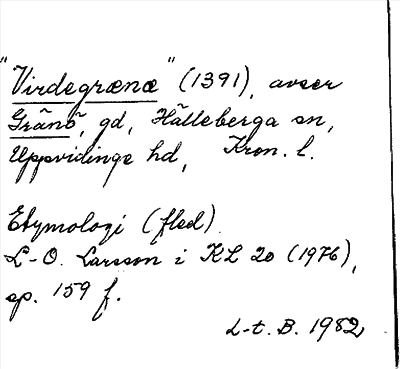 "Virdegrænæ" (1391), avser
Gränö, gd, Hälleberga sn,
Uppvidinge hd, Kron. l.
Etymologi (fled).
L-O. Larsson i KL 20 (1976),
sp. 159 f.
L-t. B. 1982